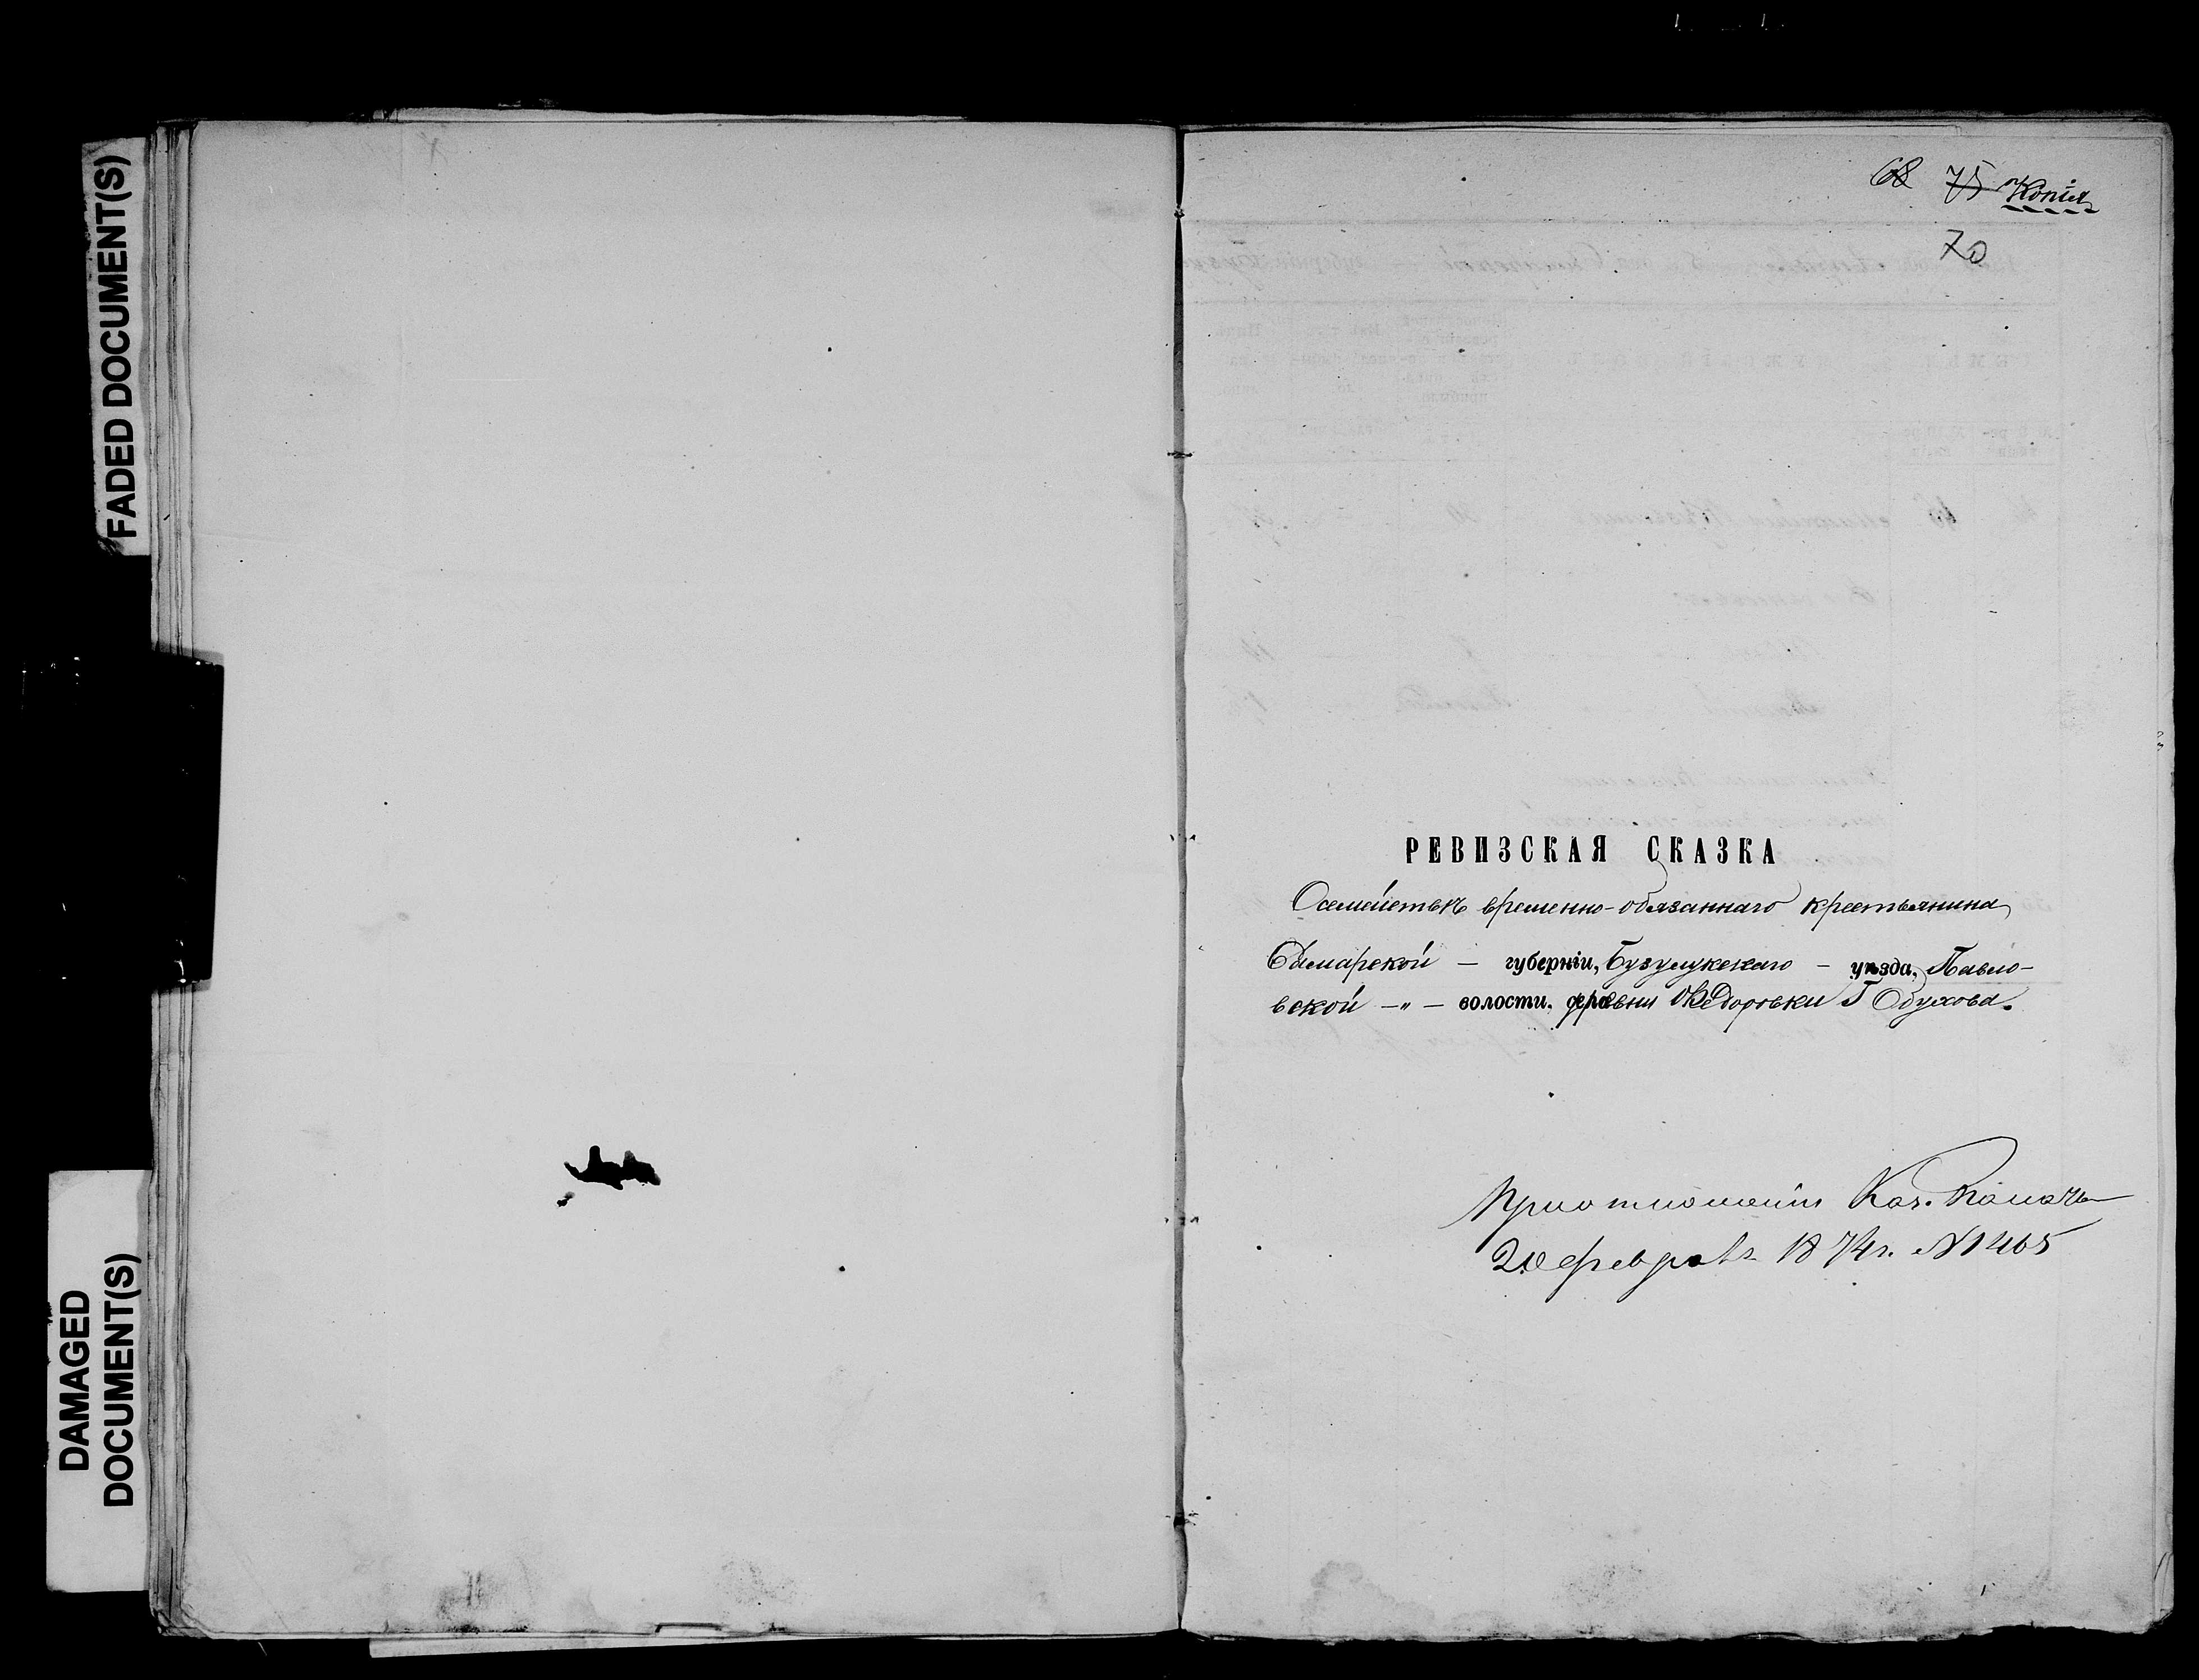 FADED DOCUMENT(S)
DAMAGED
DOCUMENT(S)
68 75 Копія
70
РЕВИЗСКАЯ СКАЗКА
О семействѣ временно-обязаннаго крестьянина
Самарской — губерніи, Бузулукскаго — уѣзда, Павло-
вской —„— волости, деревни Ѳедоровки Г Обухова.
При отношеніи Каз. Палаты
20 февраля 1874 г. №1465